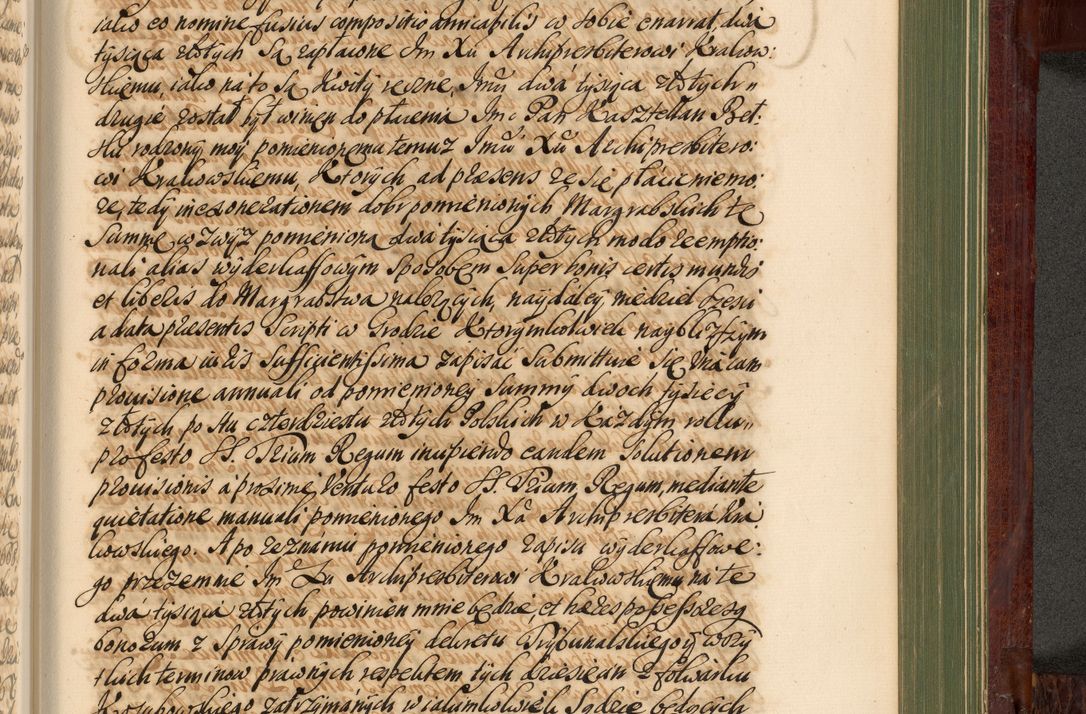 iako eo nomine fusius compositio amicabilis w sobie enarrat, dwa
tysiąca złotych są zapłacone Jm Xu Archipresbiterowi Krakow:
skiemu, iako na to są kwity ręczne, Jmu dwa tysiąca złotych
drugie został był winien do płacenia Jmc Pan Kasztellan Beł:
ski rodzony moy, pomienionemu temuz Jmu Xu Archipresbitero:
wi Krakowskiemu, ktorych ad præsens ze się płacic niemo:
ze, tedy in exonerationem dobr pomienionych Margrabskich te
Summę wzwyz pomieniona dwa tysiąca złotych modo reemptio:
nali alias wyderkaffowym sposobem super bonis certis mundis
et liberis do Margrabstwa nalezących, naydaley niedziel szesci
a data præsentis Scripti w Grodzie ktorymkolwiek naybliższym
in forma iuris sufficientissima zapisac submittuie się, Maiąc
prouisione annuali od pomienioney Summy dwoch tysięcy
złotych po stu czterdziestu złotych Polskich w kazdym roku
pro festo SS. Trium Regum incipiendo eandem Solutionem
prouisionis a proxime venturo festo SS. Trium Regum, mediante
quietatione manuali pomienionego Jm Xa Archipresbitera Kra
kowskiego. A po zeznaniu pomienionego zapisu wyderkaffowe:
go przezemnie Jm Xu Archipresbiterowi Krakowskiemu na te
dwa tysiąca złotych powinien mnie będzie, et hæres possessores
bonorum z sprawy pomienioney dekretu Trybunalskiego y wszy
stkich terminow prawnych respektem tych dziesięcin z folwarku
zatrzymanych w iakimkolwiek Sądzie będących